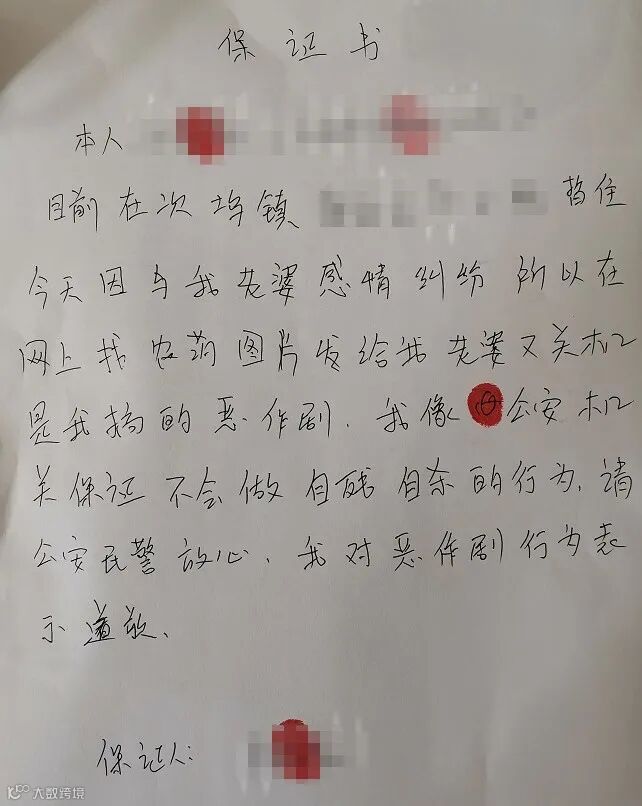 保证书
本人
目前在次坞镇 暂住
今天因与我老婆感情纠纷所以在
网上找农药图片发给我老婆又关机
是我搞的恶作剧.我像公安机
关保证不会做自残自杀的行为.请
公安民警放心.我对恶作剧行为表
示道歉.
保证人:
大数跨境